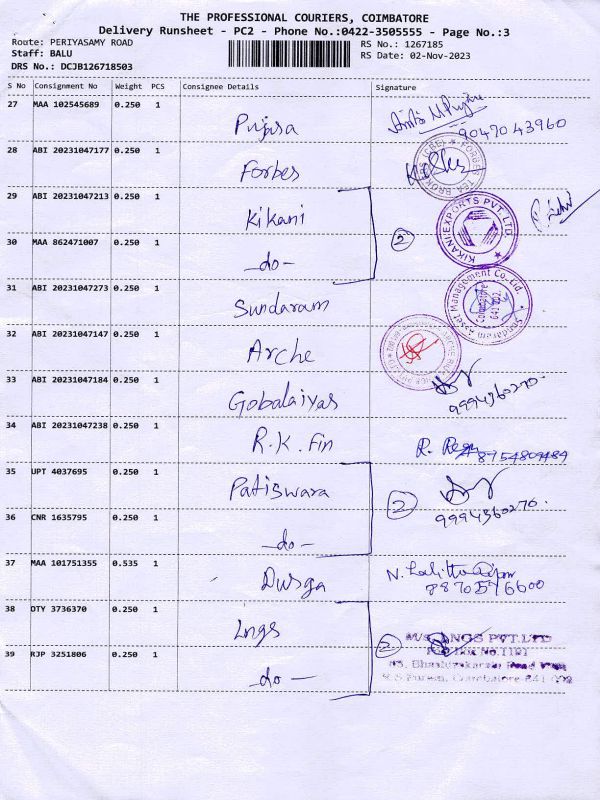 THE PROFESSIONAL COURIERS, COIMBATORE
Delivery Runsheet - PC2 - Phone No.:0422-3505555 - Page No.:3
Route: PERIYASAMY ROAD
RS No.: 1267185
Staff: BALU
RS Date: 02-Nov-2023
DRS No.: DCJB126718503
S No Consignment No Weight PCS Consignee Details Signature
27 MAA 102545689 0.250 1
Pujasa
9047043960
28 ABI 20231047177 0.250 1
Forbes
FORBES TEA BROKERS
29 ABI 20231047213 0.250 1
Kikani
KIKANI EXPORTS PVT. LTD.
30 MAA 862471007 0.250 1
2
-do-
31 ABI 20231047273 0.250 1
Sundaram
Sundaram Asset Management Co. Ltd
Coimbatore
641 002.
32 ABI 20231047147 0.250 1
Arche
33 ABI 20231047184 0.250 1
Gobalaiyas
9994360270.
34 ABI 20231047238 0.250 1
R.K. Fin
35 UPT 4037695 0.250 1
Patiswara
2
36 CNR 1635795 0.250 1
9994360270.
-do-
37 MAA 101751355 0.535 1
Durga
N. Lalitha
8870576600
38 OTY 3736370 0.250 1
Lngs
2
M/s LNGS PVT.LTD
39 RJP 3251806 0.250 1
-do-
Road
R.S. Puram, Coimbatore 641 002